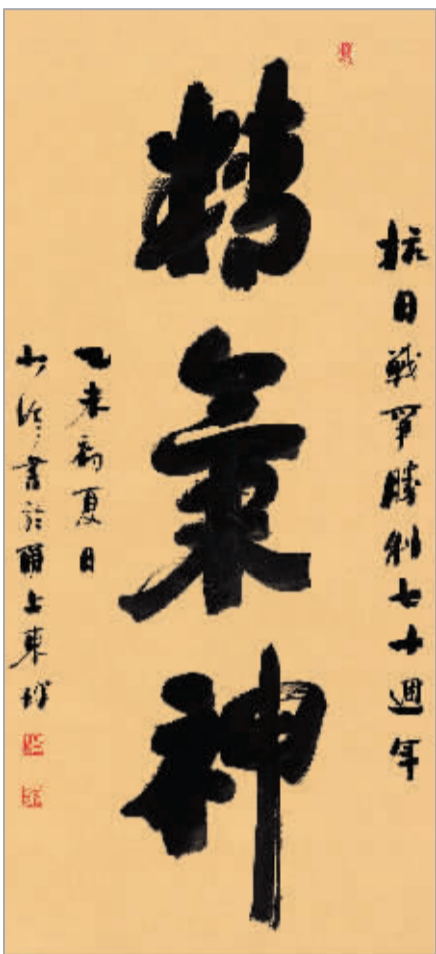 抗日戰爭勝利七十週年
精氣神
乙未初夏日
書於上東